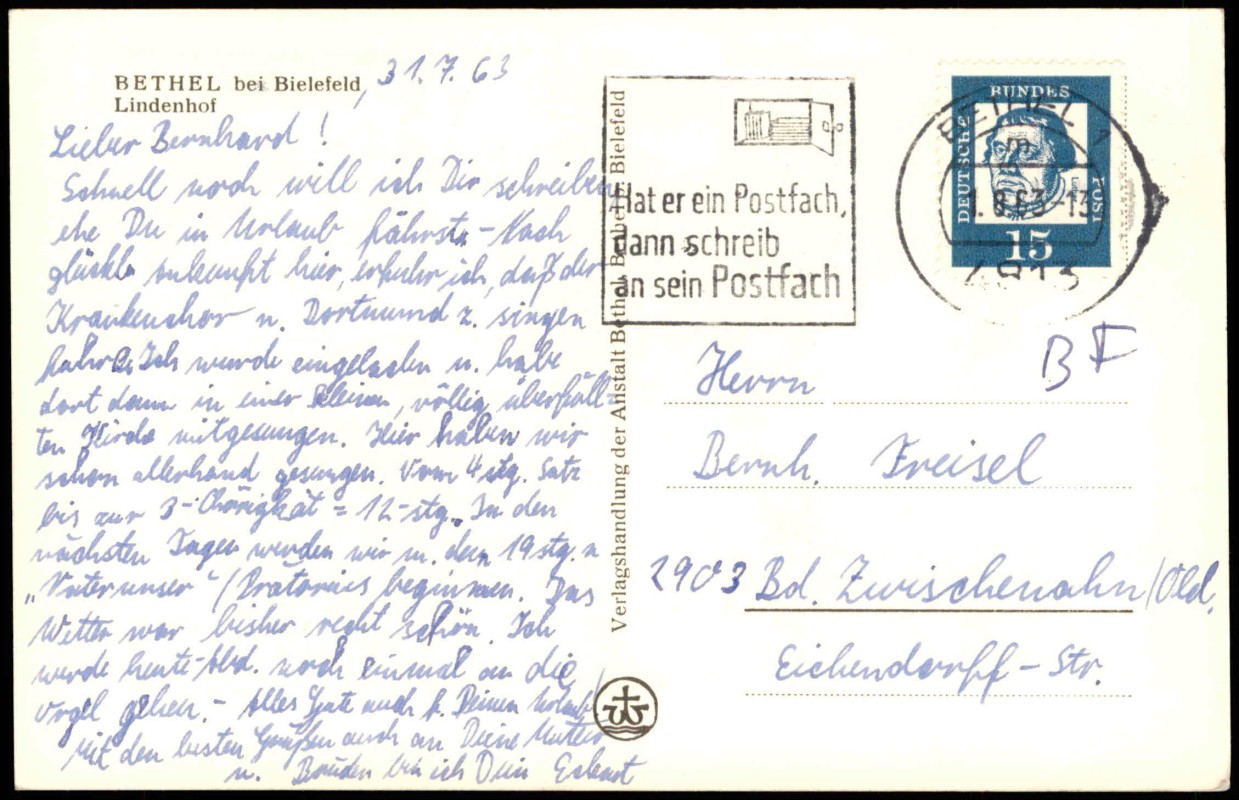 BETHEL bei Bielefeld, 31.7.63
Lindenhof
Lieber Bernhard!
Schnell noch will ich Dir schreiben
ehe Du in Urlaub fährst. – Nach
glückl. Ankunft hier, erfuhr ich, daß der
Krankenchor n. Dortmund z. singen
fahre. Ich wurde eingeladen u. habe
dort dann in einer kleinen, völlig überfüll-
ten Kirche mitgesungen. Hier haben wir
schon allerhand gesungen. Vom 4 stg. Satz
bis zur 3-Chörigkät = 12-stg. In den
nächsten Tagen werden wir m. dem 19 stg.
„Vaterunser“ / Prätorius beginnen. Das
Wetter war bisher recht schön. Ich
werde heute Abd. noch einmal an die
Orgel gehen. – Alles Gute auch f. Deinen Urlaub!
Mit den besten Grüßen auch an Deine Mutter
u. Bruder bin ich Dein
Verlagshandlung der Anstalt Bethel, Bethel b. Bielefeld
Hat er ein Postfach,
dann schreib
an sein Postfach
BETHEL 1
m
1.8.63-13
4813
DEUTSCHE BUNDESPOST
15
BF
Herrn
Bernh. Freisel
2903 Bd. Zwischenahn/Old.
Eichendorff-Str.